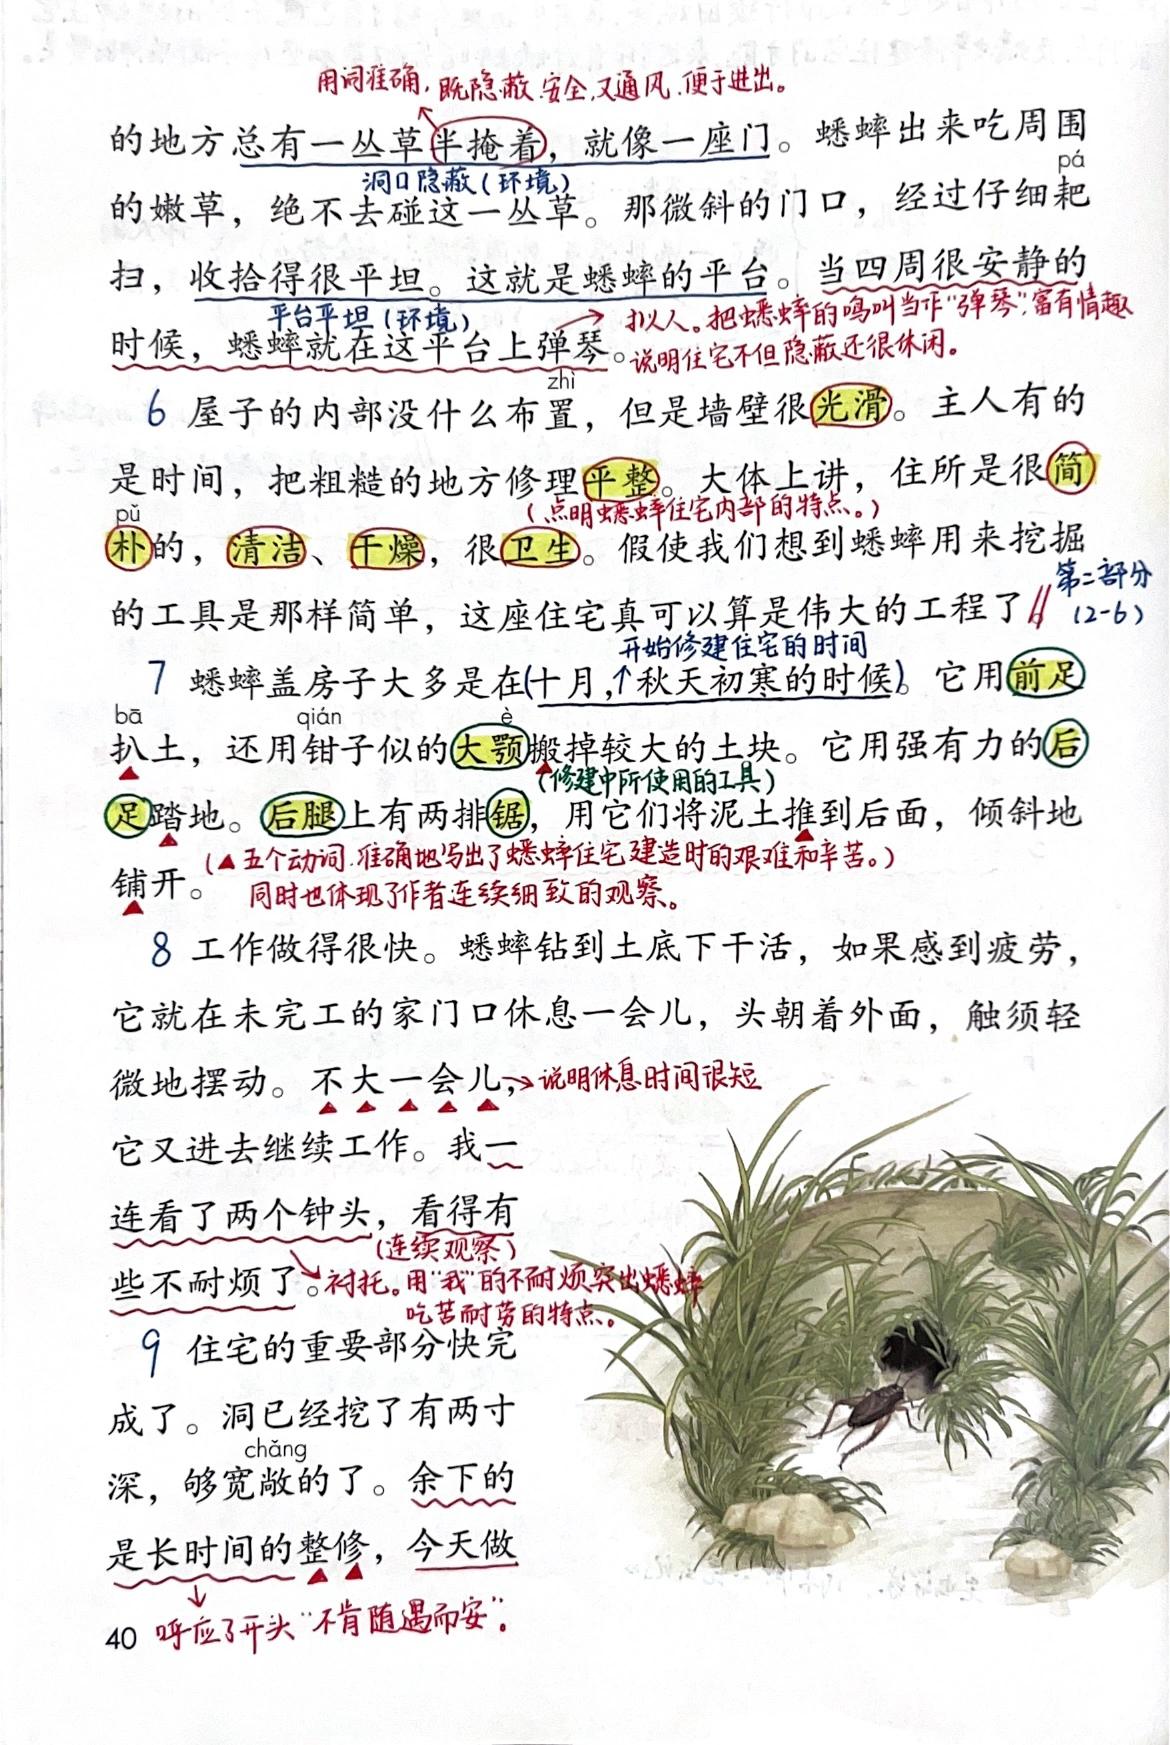 用词准确，既隐蔽、安全，又通风、便于进出。
的地方总有一丛草半掩着，就像一座门。蟋蟀出来吃周围
洞口隐蔽（环境）
pá
的嫩草，绝不去碰这一丛草。那微斜的门口，经过仔细耙
扫，收拾得很平坦。这就是蟋蟀的平台。当四周很安静的
平台平坦（环境）
拟人。把蟋蟀的鸣叫当作“弹琴”，富有情趣
时候，蟋蟀就在这平台上弹琴。
说明住宅不但隐蔽还很休闲。
zhì
6 屋子的内部没什么布置，但是墙壁很光滑。主人有的
是时间，把粗糙的地方修理平整。大体上讲，住所是很简
pǔ
（点明蟋蟀住宅内部的特点。）
朴的，清洁、干燥，很卫生。假使我们想到蟋蟀用来挖掘
第二部分
（2-6）
的工具是那样简单，这座住宅真可以算是伟大的工程了。
开始修建住宅的时间
7 蟋蟀盖房子大多是在（十月，↑秋天初寒的时候）。它用前足
bā qián è
扒土，还用钳子似的大颚搬掉较大的土块。它用强有力的后
（修建中所使用的工具）
足踏地。后腿上有两排锯，用它们将泥土推到后面，倾斜地
（▲五个动词，准确地写出了蟋蟀住宅建造时的艰难和辛苦。）
铺开。
同时也体现了作者连续细致的观察。
8 工作做得很快。蟋蟀钻到土底下干活，如果感到疲劳，
它就在未完工的家门口休息一会儿，头朝着外面，触须轻
微地摆动。不大一会儿，→说明休息时间很短
它又进去继续工作。我一
连看了两个钟头，看得有
（连续观察）
些不耐烦了。
衬托。用“我”的不耐烦突出蟋蟀
吃苦耐劳的特点。
9 住宅的重要部分快完
成了。洞已经挖了有两寸
chǎng
深，够宽敞的了。余下的
是长时间的整修，今天做
呼应了开头“不肯随遇而安”。
40